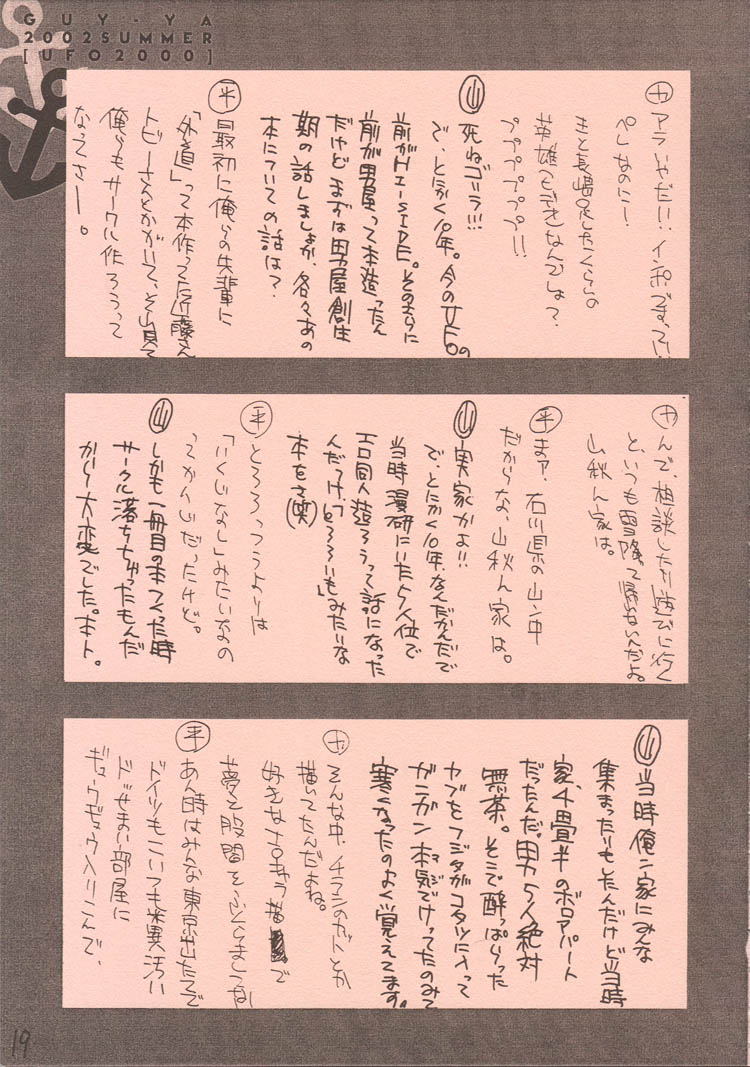 GUY-YA
2002SUMMER
[UFO2000]
カ アラいやだ!!、インポですってい
ペしゃのにー
きと長嶋
英雄
なんでしょ?
プププププ!!
山 死ねゴリラ!!!
で、とにかく10年。今のUFOの
前がHI-SIDE。そのまえに
前が男屋って本造ったん
だけど まずは男屋創生
期の話しましょか、各々あの
本についての話は?
平 最初に俺らの先輩に
「外道」って本作ってた近藤さん
トビーさんとかがいて、それ見て
俺らもサークル作ろうって
なってさー。
カ んで、相談したり遊びに行く
と、いつも雪降って帰れないんだよ。
山秋ん家は。
平 まァ、石川県の山ン中
だからな、山秋ん家は。
山 実家かよ!!
で、とにかく10年、なんだかんだで
当時漫研にいた5人位で
エロ同人造ろうって話になった
んだっけ、「とろろいも」みたいな
本をさ(笑)
平 とろろっつうよりは
「いくじなし」みたいなの
ってかんじだったけど。
山 しかも一冊目の本つくった時
サークル落ちちゃったもんだ
から大変でした。ホント。
山 当時俺ン家にみんな
集まったりもしたんだけど当時
家、4畳半のボロアパート
だったんだ。男5人絶対
無茶。そこで酔っぱらった
ヤブをフジタがコタツに入って
ガンガン本気でけってたのみて
マジ
寒くなったのよく覚えてます。
カ そんな中、チラシのカットとか
描いてたんだよね。
好きなプロキャラ描
で
夢と股間をふくらましてな
平 あん時はみんな東京出たてで
ドイツもこいつも米異汚い
ドせまい部屋に
ギュウギュウ入りこんで、
19